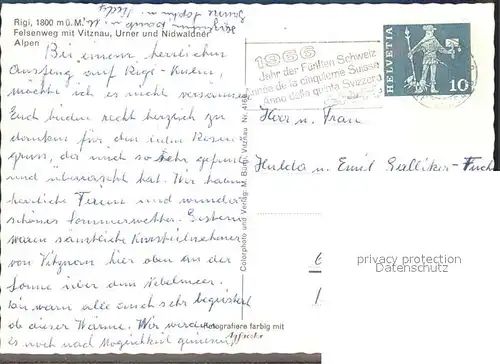 Rigi, 1800 m ü. M.
Felsenweg mit Vitznau, Urner und Nidwaldner
Alpen
Bei einem herrlichen
Ausflug auf Rigi-Kulm,
möchte ich es nicht versäumen
Euch beiden recht herzlich zu
danken für den lieben Rosen-
gruss, der mich so sehr gefreut
und überrascht hat. Wir haben
herrliche Ferien und wunder-
schönes Sommerwetter. Gestern
waren sämtliche Kursteilnehmer
von Vitznau hier oben an der
Sonne über dem Nebelmeer.
Wir waren alle auch sehr begeistert
ob dieser Wärme. Wir werden
es noch nach Möglichkeit geniessen.
Colorphoto und Verlag: M. Bürgi, Vitznau Nr. 4168
Fotografiere farbig mit
Agfacolor
1966
Jahr der Fünften Schweiz
Année de la Cinquième Suisse
Anno della quinta Svizzera
HELVETIA
10
Herr u. Frau
Hulda u. Emil Galliker-Fuchs
privacy protection
Datenschutz